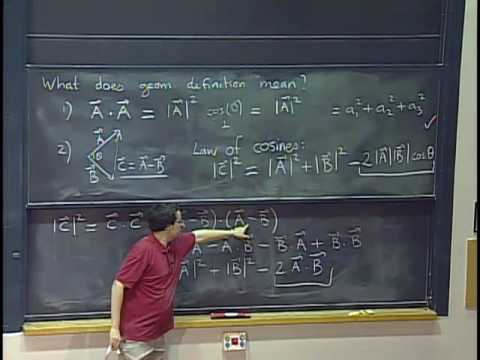 What does geom definition mean?
1) A⃗ · A⃗ = |A⃗|² cos(0) = |A⃗|² = a₁² + a₂² + a₃² ✓
1
2) A⃗ A θ B⃗ C⃗ = A⃗ - B⃗ Law of cosines:
|C⃗|² = |A⃗|² + |B⃗|² - 2|A⃗||B⃗| cosθ
|C⃗|² = C⃗ · C⃗ - B⃗) · (A⃗ - B⃗)
A - A⃗ · B⃗ - B⃗ · A⃗ + B⃗ · B⃗
A⃗|² + |B⃗|² - 2 A⃗ · B⃗